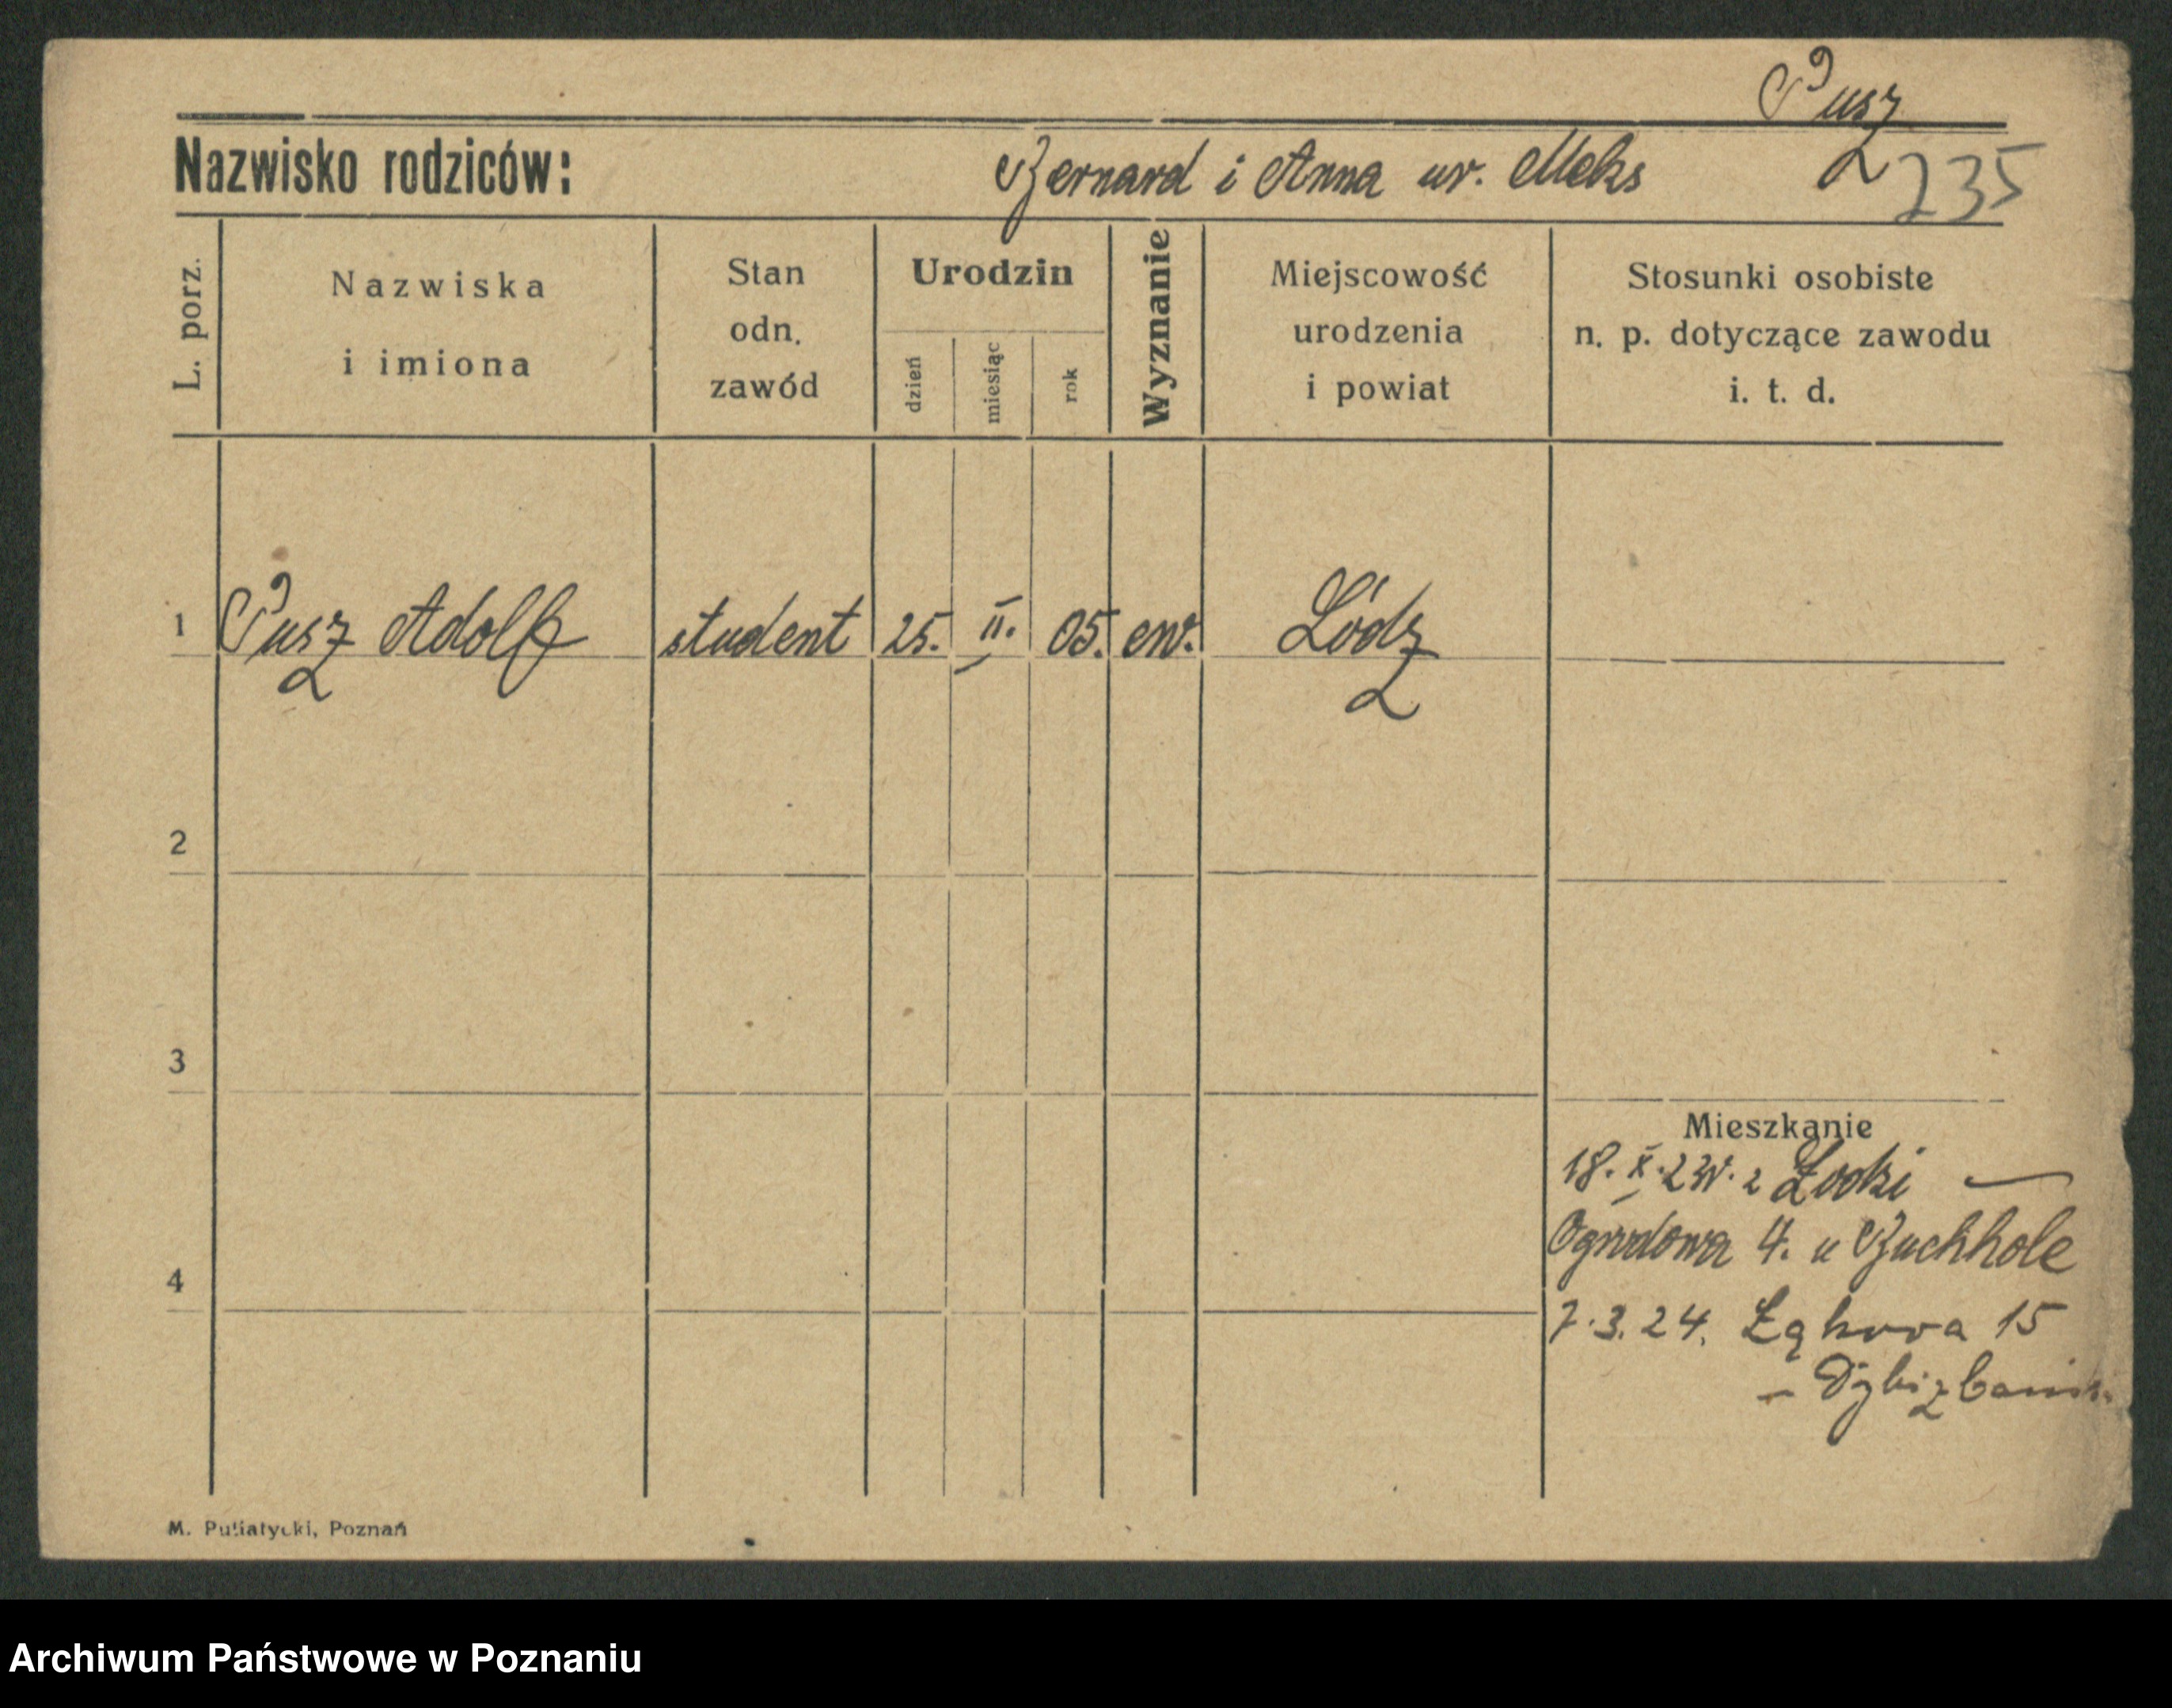 Pusz
Nazwisko rodziców: Bernard i Anna ur. Meks
235
L. porz.
Nazwiska
i imiona
Stan
odn.
zawód
Urodzin
dzień
miesiąc
rok
Wyznanie
Miejscowość
urodzenia
i powiat
Stosunki osobiste
n. p. dotyczące zawodu
i. t. d.
1 Pusz Adolf student 25. II. 05. ew. Łódz
2
3
Mieszkanie
18. X. 23r. z Łodzi —
Ogrodowa 4. u Buchholc
4
7.3.24. Łąkowa 15
M. Putiatycki, Poznań
Archiwum Państwowe w Poznaniu